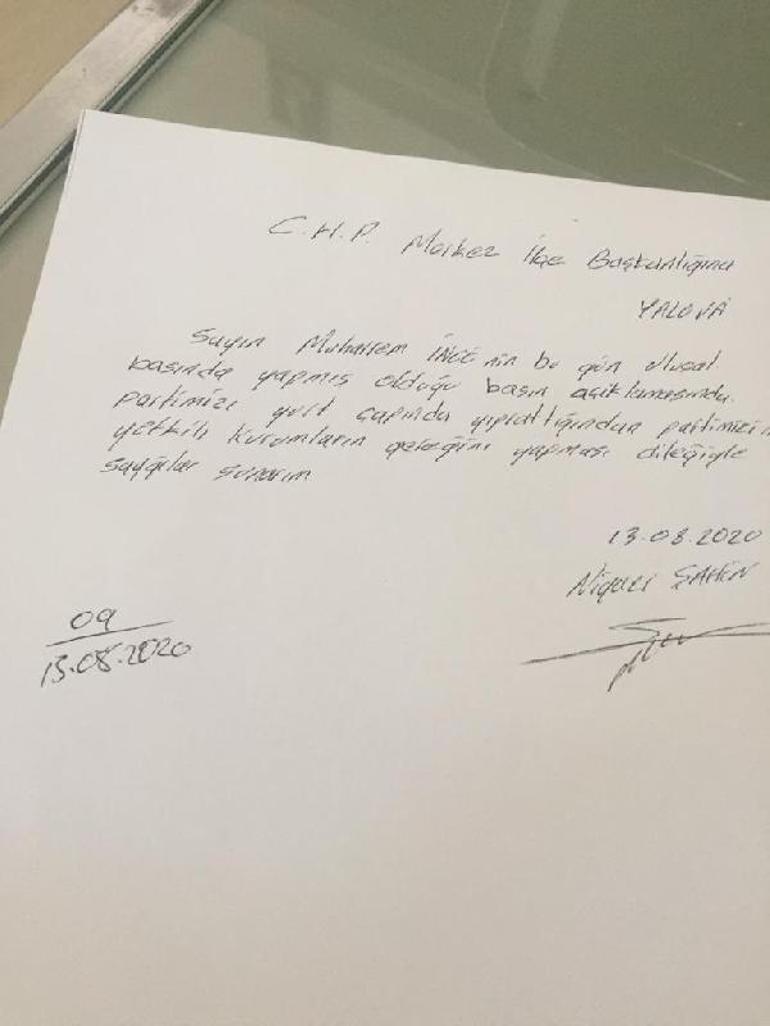 C.H.P. Merkez İlçe Başkanlığına
YALOVA
Sayın Muharrem İNCE nin bu gün ulusal
basında yapmış olduğu basın açıklamasında.
partimizi yurt çapında yıprattığından partimizin
yetkili kurumların gereğini yapması dileğiyle
saygılar sunarım
13.08.2020
ŞAHİN
09
13.08.2020